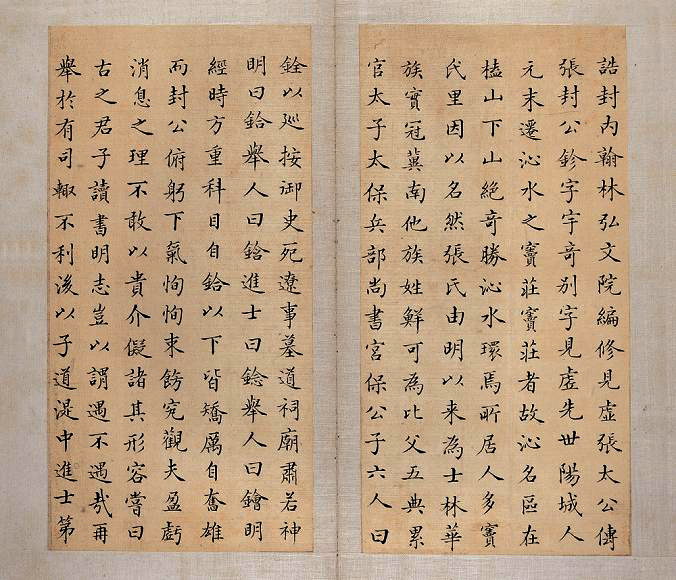 誥封內翰林弘文院編修見虛張太公傳
張封公鉁字宇奇別字見虛先世陽城人
元末遷沁水之竇莊竇莊者故沁名區在
榼山下山絕奇勝沁水環焉所居人多竇
氏里因以名然張氏由明以来為士林華
族實冠冀南他族姓鮮可為比父五典累
官太子太保兵部尚書宮保公子六人曰
銓以巡按御史死遼事墓道祠廟肅若神
明曰鉿舉人曰鋡進士曰鋑舉人曰鏳明
經時方重科目自鉿以下皆矯厲自奮雄
而封公俯躬下氣恂恂束飭究觀夫盈虧
消息之理不敢以貴介儗諸其形容嘗曰
古之君子讀書明志豈以謂遇不遇哉再
舉於有司輙不利後以子道湜中進士第